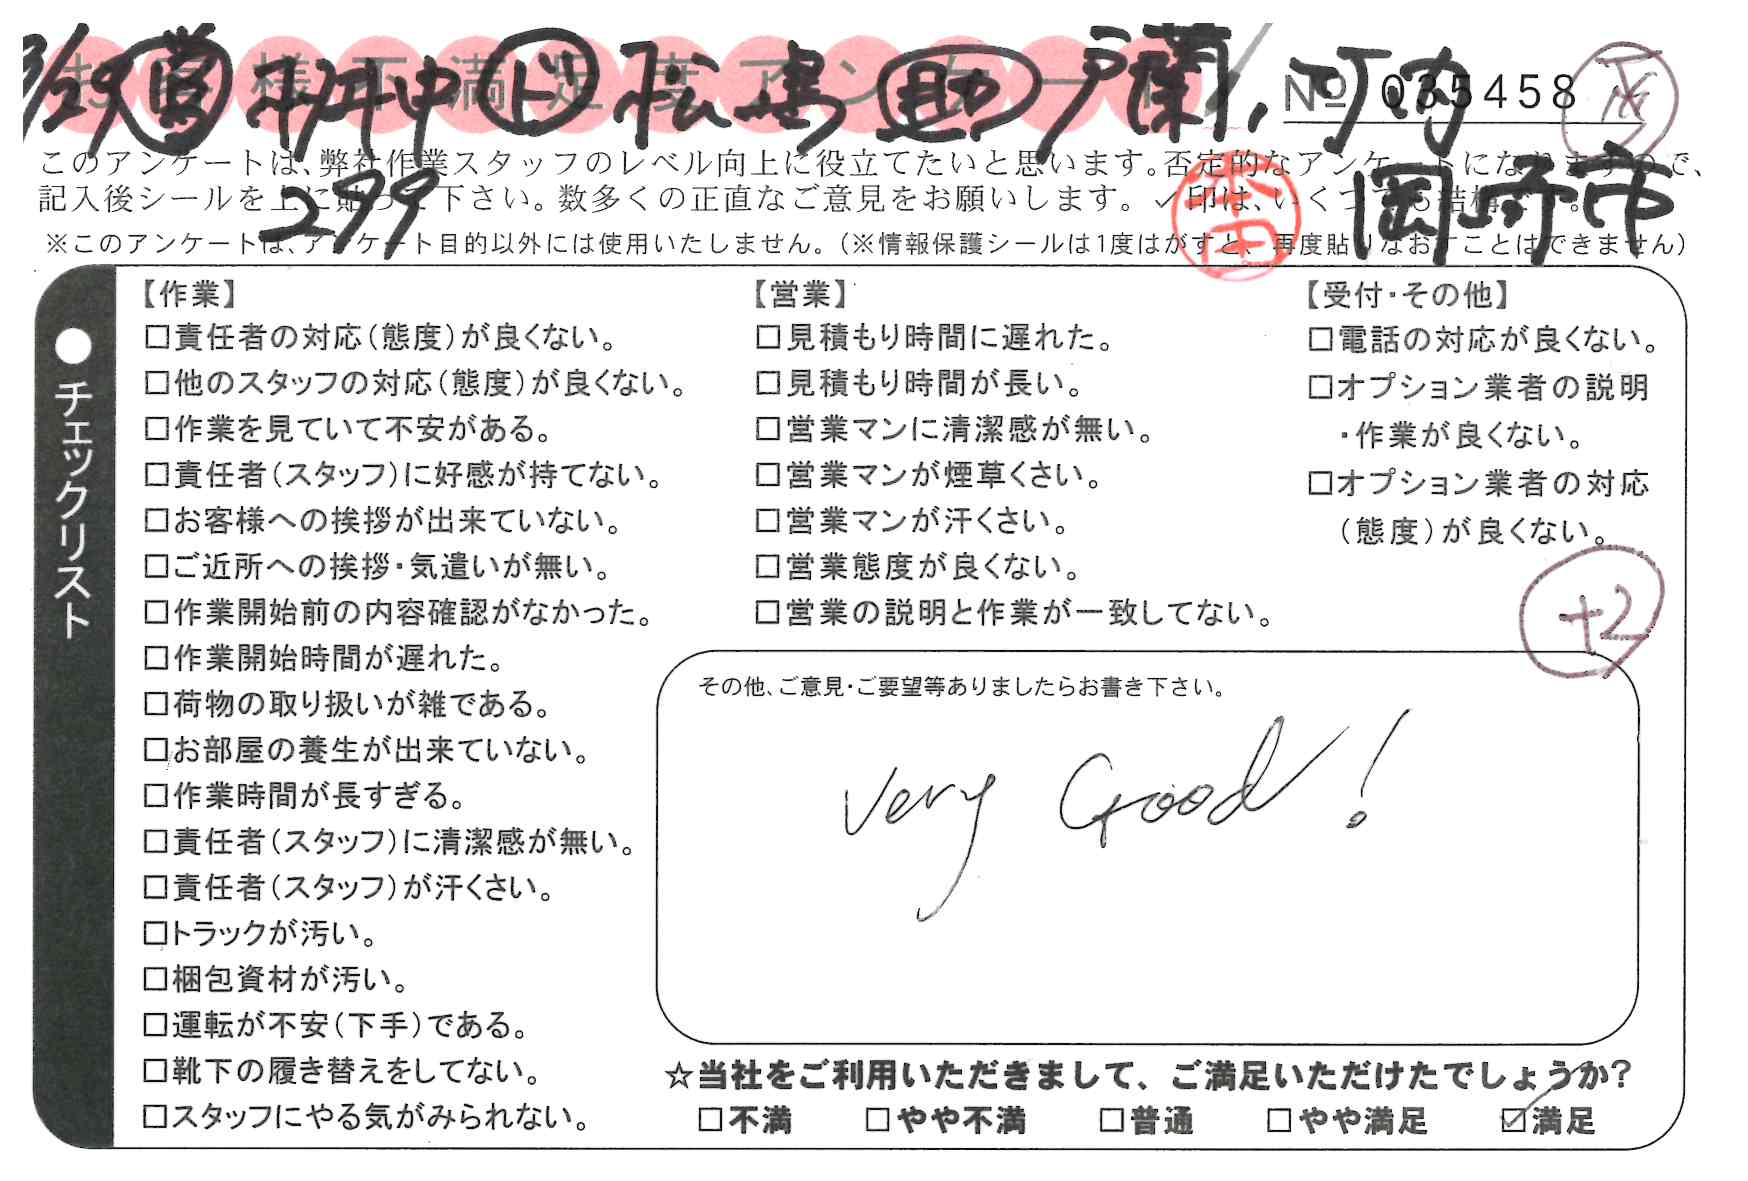 お客様不満足度アンケート
3/29 営 村中 ド 松島 助 戸蘭、河内
No 035458
このアンケートは、弊社作業スタッフのレベル向上に役立てたいと思います。否定的なアンケートになりますので、
記入後シールを上に貼って下さい。数多くの正直なご意見をお願いします。✓印は、いくつでも結構です。
299
岡崎市
※このアンケートは、アンケート目的以外には使用いたしません。(※情報保護シールは1度はがすと、再度貼りなおすことはできません)
●チェックリスト
【作業】
□責任者の対応(態度)が良くない。
□他のスタッフの対応(態度)が良くない。
□作業を見ていて不安がある。
□責任者(スタッフ)に好感が持てない。
□お客様への挨拶が出来ていない。
□ご近所への挨拶・気遣いが無い。
□作業開始前の内容確認がなかった。
□作業開始時間が遅れた。
□荷物の取り扱いが雑である。
□お部屋の養生が出来ていない。
□作業時間が長すぎる。
□責任者(スタッフ)に清潔感が無い。
□責任者(スタッフ)が汗くさい。
□トラックが汚い。
□梱包資材が汚い。
□運転が不安(下手)である。
□靴下の履き替えをしてない。
□スタッフにやる気がみられない。
【営業】
□見積もり時間に遅れた。
□見積もり時間が長い。
□営業マンに清潔感が無い。
□営業マンが煙草くさい。
□営業マンが汗くさい。
□営業態度が良くない。
□営業の説明と作業が一致してない。
【受付・その他】
□電話の対応が良くない。
□オプション業者の説明
・作業が良くない。
□オプション業者の対応
(態度)が良くない。
+2
その他、ご意見・ご要望等ありましたらお書き下さい。
Very Good!
☆当社をご利用いただきまして、ご満足いただけたでしょうか?
□不満 □やや不満 □普通 □やや満足 ☑満足